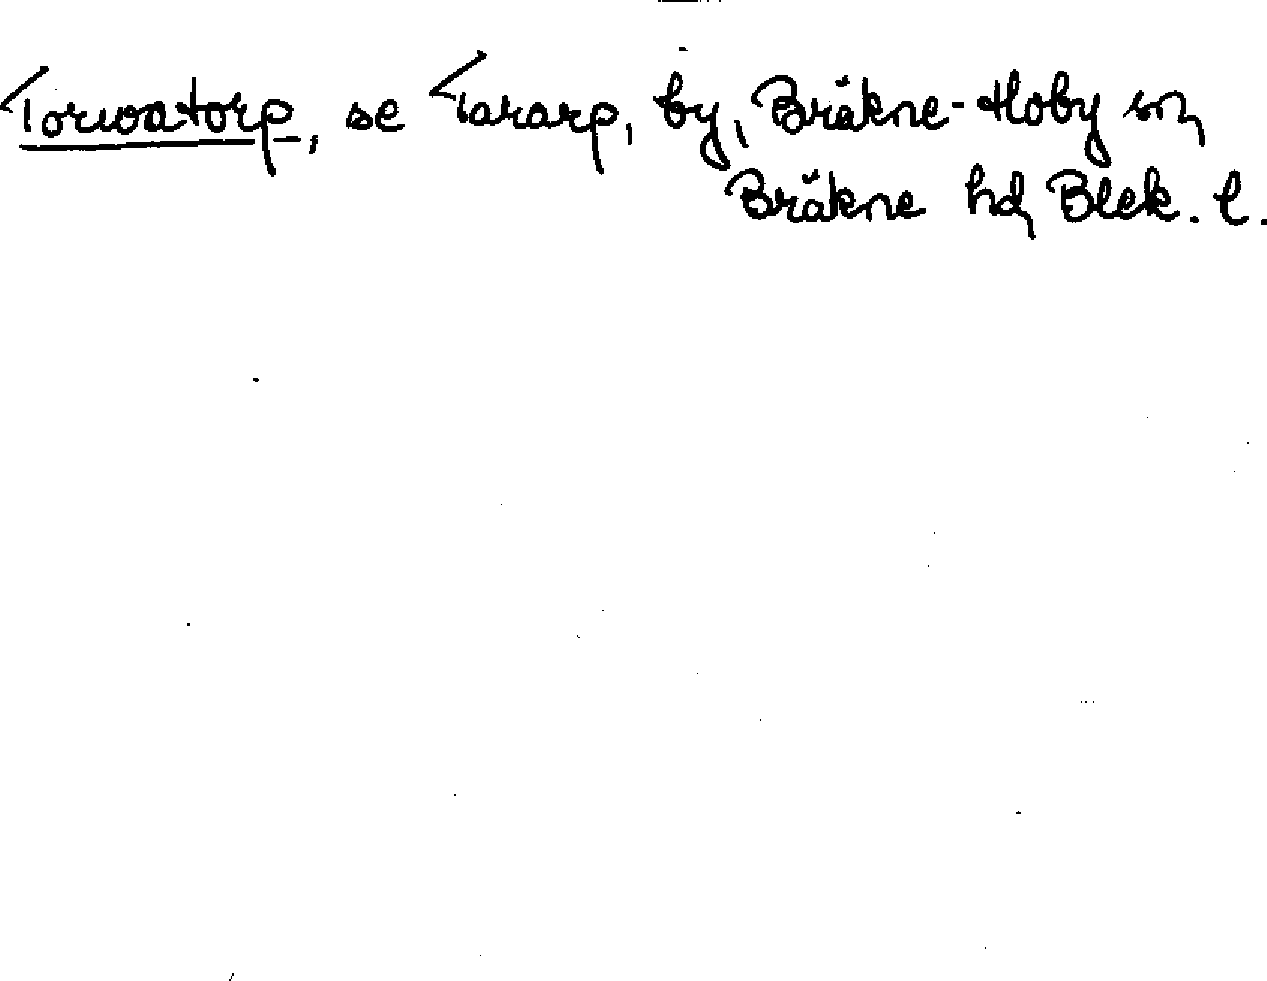 Toruoatorp, se Tararp, by, Bräkne-Hoby sn
Bräkne hd Blek. l.